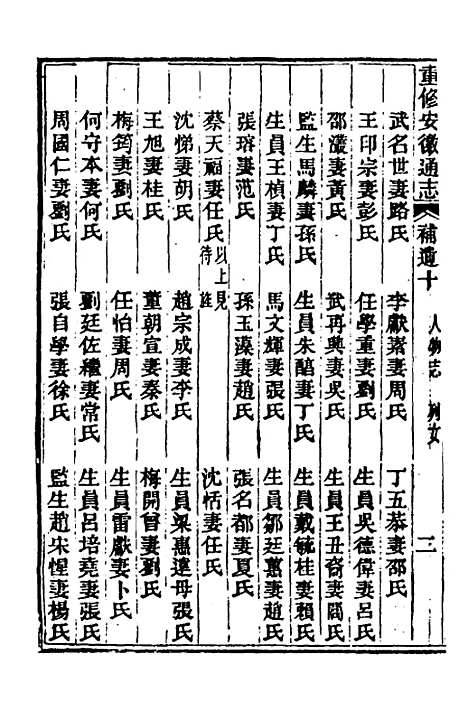 重修安徽通志 補遺十 人物志 列女 二
武名世妻路氏 李獻素妻周氏 丁五恭妻邵氏
王印宗妻彭氏 任學重妻劉氏 生員吳德偉妻呂氏
邵瀛妻黃氏 武再興妻吳氏 生員王丑裔妻閻氏
監生馬麟妻孫氏 生員朱醅妻丁氏 生員戴毓桂妻賴氏
生員王楨妻丁氏 馬文輝妻張氏 生員鄒廷蕙妻趙氏
張瑢妻范氏 孫玉藻妻趙氏 張名都妻夏氏
蔡天福妻任氏以上見待旌 沈恬妻任氏
沈悌妻胡氏 趙宗成妻李氏 生員梁惠遠母張氏
王旭妻桂氏 董朝宣妻秦氏 梅開曾妻劉氏
梅筠妻劉氏 任怡妻周氏 生員雷獻妻卜氏
何守本妻何氏 劉廷佐繼妻常氏 生員呂培堯妻張氏
周國仁妻劉氏 張自學妻徐氏 監生趙宋惺妻楊氏